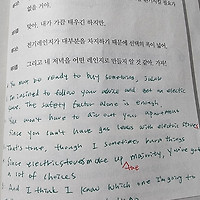 없을 거야.
맞아. 내가 가끔 태우긴 하지만.
전기레인지가 대부분을 차지하기 때문에 선택의 폭이 넓어.
그리고 네 저녁을 어떤 레인지로 만들지 알 것 같아. 자!
be ready to buy something, Susan
inclined to follow your advice and get an electric
one. The safety factor alone is enough.
You won't have to air out your apartment
Since you can't have gas leaks with electric stoves
That's true, though I sometimes burn things
Since electric stoves make up majority, you've got
the
a lot of choices
And I think I know which one I'm going to